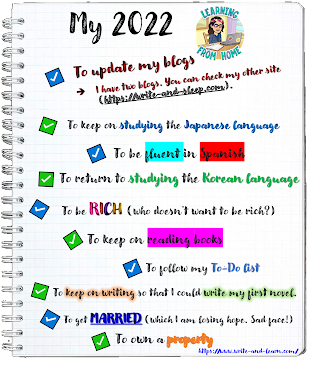 My 2022
LEARNING
FROM HOME
To update my blogs
→ I have two blogs. You can check my other site
(https://write-and-sleep.com).
To keep on studying the Japanese language
To be fluent in Spanish
To return to studying the Korean language
To be RICH (who doesn't want to be rich?)
To keep on reading books
To follow my To-Do list
To keep on writing so that I could write my first novel.
To get MARRIED (which I am losing hope. Sad face!)
To own a property
https://www.write-and-learn.com/